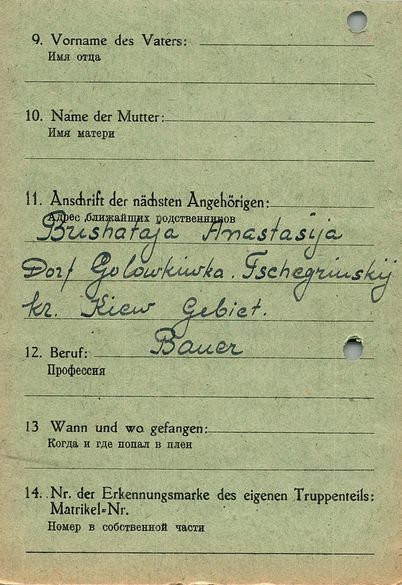 9. Vorname des Vaters:
Имя отца
10. Name der Mutter:
Имя матери
11. Anschrift der nächsten Angehörigen:
Адрес ближайших родственников
Brishataja Anastasija
Dorf Golowkiwka. Tschegrinskij
kr. Kiew Gebiet.
12. Beruf: Bauer
Профессия
13 Wann und wo gefangen:
Когда и где попал в плен
14. Nr. der Erkennungsmarke des eigenen Truppenteils:
Matrikel-Nr.
Номер в собственной части